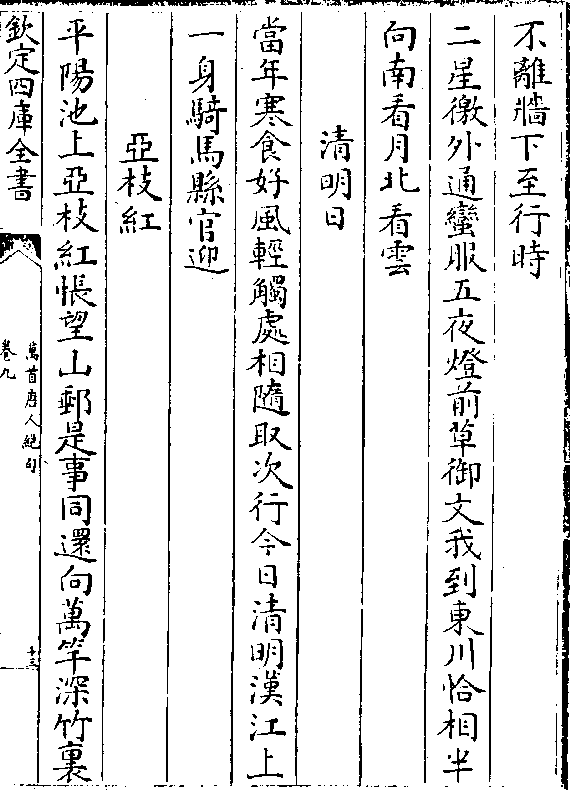 不離牆下至行時
二星徼外通蠻服五夜燈前草御文我到東川恰相半
向南看月北看雲
清明日
當年寒食好風輕觸處相隨取次行今日清明漢江上
一身騎馬縣官迎
亞枝紅
平陽池上亞枝紅悵望山郵是事同還向萬竿深竹裏
欽定四庫全書
萬首唐人絕句
卷九
十三